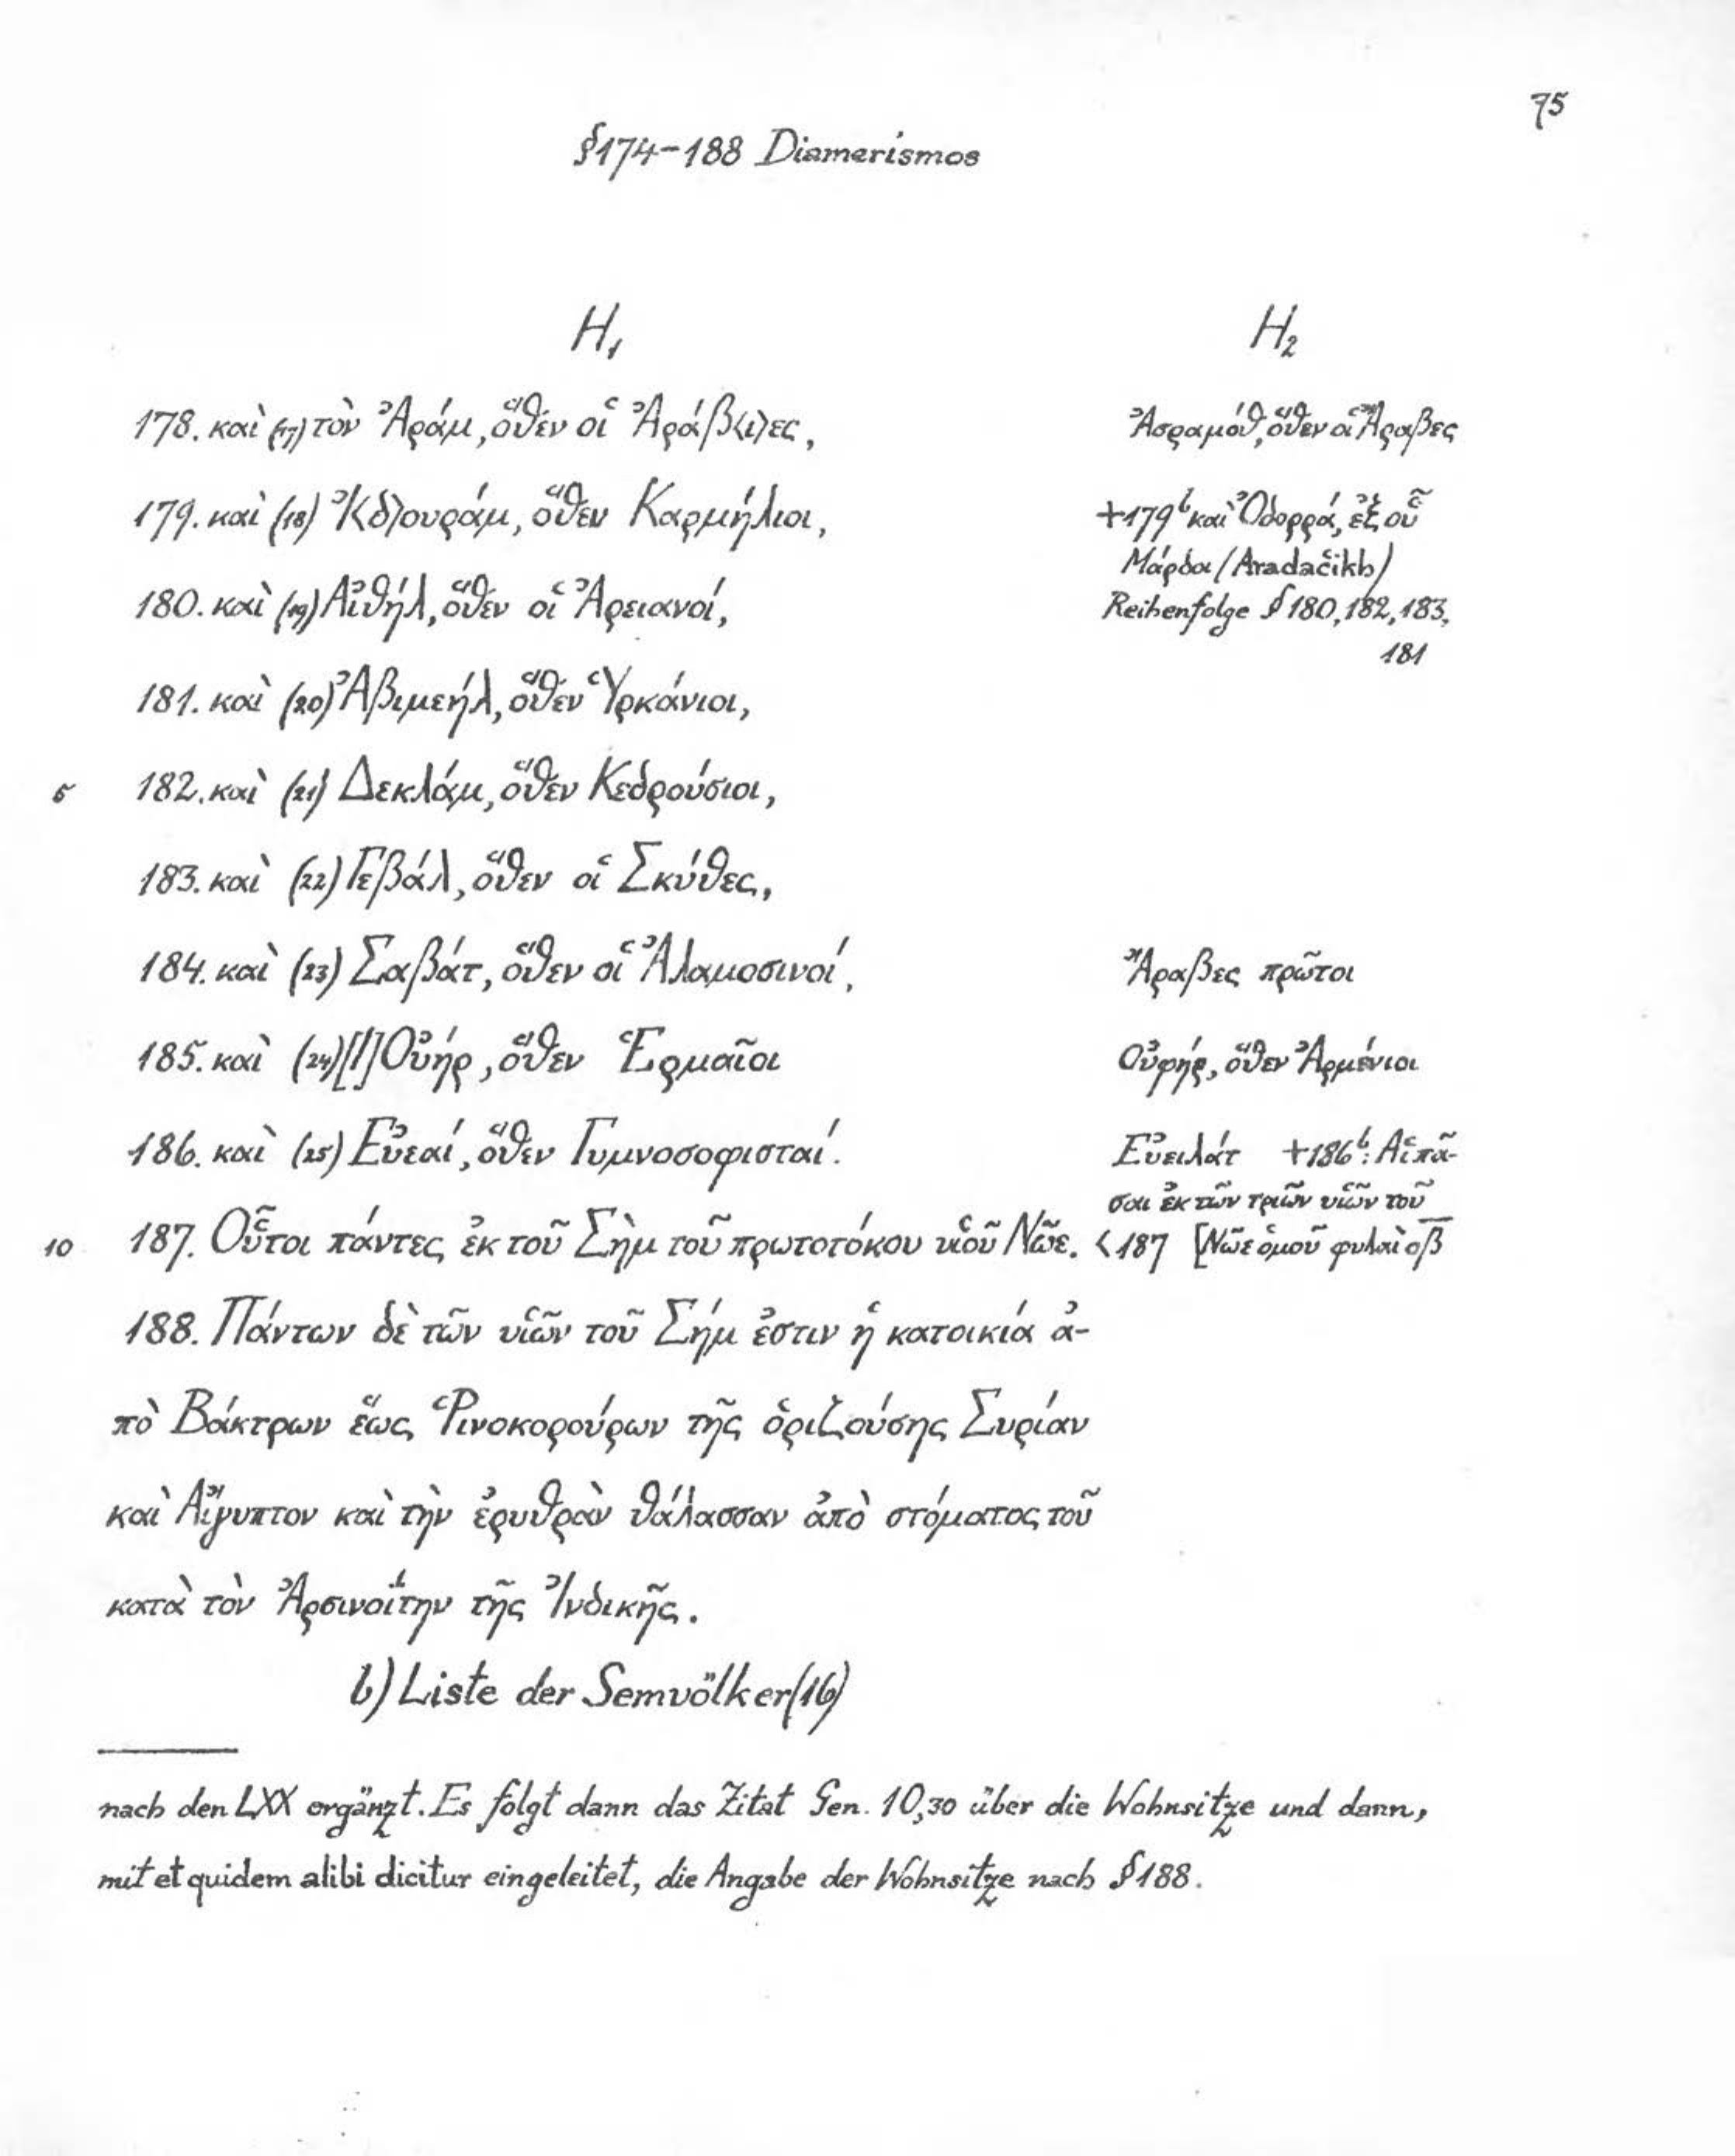 75
§174-188 Diamerismos
H₁ H₂
178. καὶ (17) τὸν Ἀράμ, ὅθεν οἱ Ἀράβ<ι>ες, Ἀσραμόθ, ὅθεν οἱ Ἄραβες
179. καὶ (18) Ἰ<δ>ουράμ, ὅθεν Καρμήλιοι, +179ᵇ καὶ Ὀδορρά, ἐξ οὗ
Μάρδοι (Aradačikh)
180. καὶ (19) Αἰθήλ, ὅθεν οἱ Ἀρειανοί, Reihenfolge § 180, 182, 183,
181
181. καὶ (20) Ἀβιμεήλ, ὅθεν Ὑρκάνιοι,
5 182. καὶ (21) Δεκλάμ, ὅθεν Κεδρούσιοι,
183. καὶ (22) Γεβάλ, ὅθεν οἱ Σκύθες,
184. καὶ (23) Σαβάτ, ὅθεν οἱ Ἀλαμοσινοί, Ἄραβες πρῶτοι
185. καὶ (24) [Ι]Οὐήρ, ὅθεν Ἑρμαῖοι Οὐφήρ, ὅθεν Ἀρμένιοι
186. καὶ (25) Εὐεαί, ὅθεν Γυμνοσοφισταί. Εὐειλάτ +186ᵇ: Αἱ πᾶ-
σαι ἐκ τῶν τριῶν υἱῶν τοῦ
10 187. Οὗτοι πάντες ἐκ τοῦ Σὴμ τοῦ πρωτοτόκου υἱοῦ Νῶε. < 187 [Νῶε ὁμοῦ φυλαὶ οβ
188. Πάντων δὲ τῶν υἱῶν τοῦ Σήμ ἐστιν ἡ κατοικία ἀ-
πὸ Βάκτρων ἕως Ῥινοκορούρων τῆς ὁριζούσης Συρίαν
καὶ Αἴγυπτον καὶ τὴν ἐρυθρὰν θάλασσαν ἀπὸ στόματος τοῦ
κατὰ τὸν Ἀρσινοΐτην τῆς Ἰνδικῆς.
b) Liste der Semvölker (16)
nach den LXX ergänzt. Es folgt dann das Zitat Gen. 10,30 über die Wohnsitze und dann,
mit et quidem alibi dicitur eingeleitet, die Angabe der Wohnsitze nach § 188.